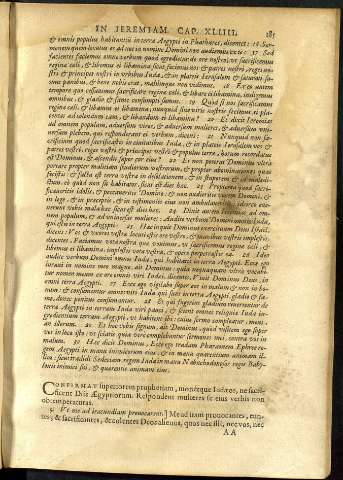 IN IEREMIAM. CAP. XLIIII. 181
& omnis populus habitantiū in terra Aegypti in Phatures, dicentes: 16 Ser-
monem quem locutus es ad nos in nomine Domini non audiemus ex te: 17 Sed
facientes faciemus omne verbum quod egredietur de ore nostro, vt sacrificemus
reginæ cœli, & libemus ei libamina, sicut fecimus nos & patres nostri, reges no-
stri & principes nostri in vrbibus Iuda, & in plateis Ierusalem & saturati su-
mus panibus, & bene nobis erat, malumque non vidimus. 18 Ex eo autem
tempore quo cessauimus sacrificare reginæ cœli, & libare ei libamina, indigemus
omnibus, & gladio & fame consumpti sumus. 19 Quod si nos sacrificamus
reginæ cœli, & libamus ei libamina, nunquid sine viris nostris fecimus ei pla-
centas ad colendum eam, & libandum ei libamina? 20 Et dixit Ieremias
ad omnem populum, aduersum viros, & aduersum mulieres, & aduersum vni-
uersam plebem, qui responderant ei verbum, dicens: 21 Nunquid non sa-
crificium quod sacrificastis in ciuitatibus Iuda, & in plateis Ierusalem vos &
patres vestri, reges vestri & principes vestri & populus terræ, horum recordatus
est Dominus, & ascendit super cor eius? 22 Et non poterat Dominus vltra
portare propter malitiam studiorum vestrorum, & propter abominationes quas
fecistis: & facta est terra vestra in desolationem, & in stuporem & in maledi-
ctum, eò quòd non sit habitator, sicut est dies hæc. 23 Propterea quòd sacri-
ficaueritis idolis, & peccaueritis Domino, & non audieritis vocem Domini, &
in lege, & in præceptis, & in testimoniis eius non ambulaueritis, idcirco eue-
nerunt vobis mala hæc sicut est dies hæc. 24 Dixit autem Ieremias ad om-
nem populum, & ad vniuersas mulieres: Audite verbum Domini omnis Iuda,
qui estis in terra Aegypti: 25 Hæc inquit Dominus exercituum Deus Israël,
dicens: Vos & vxores vestræ locuti estis ore vestro, & manibus vestris implestis,
dicentes: Faciamus vota nostra quæ vouimus, vt sacrificemus reginæ cœli, &
libemus ei libamina, implestis vota vestra, & opere perpetrastis ea. 26 Ideo
audite verbum Domini omnis Iuda, qui habitatis in terra Aegypti. Ecce ego
iuraui in nomine meo magno, ait Dominus: quia nequaquam vltra vocabi-
tur nomen meum ex ore omnis viri Iudæi, dicentis, Viuit Dominus Deus, in
omni terra Aegypti. 27 Ecce ego vigilabo super eos in malum & non in bo-
num: & consumentur omnes viri Iuda qui sunt in terra Aegypti, gladio & fa-
me, donec penitus consumantur. 28 Et qui fugerint gladium reuertentur de
terra Aegypti in terram Iuda viri pauci, & scient omnes reliquiæ Iuda in-
gredientium terram Aegypti, vt habitent ibi: cuius sermo compleatur, meus,
an illorum. 29 Et hoc vobis signum, ait Dominus, quòd visitem ego super
vos in loco isto, vt sciatis quia verè complebuntur sermones mei, contra vos in
malum. 30 Hæc dicit Dominus, Ecce ego tradam Pharaonem Ephree re-
gem Aegypti in manu inimicorum eius, & in manu quærentium animam il-
lius: sicut tradidi Sedeciam regem Iuda in manu Nabuchodonosor regis Baby-
lonis inimici sui, & quærentis animam eius.
CONFIRMAT superiorem prophetiam, monéque Iudæos, ne sacri-
ficent Diis Ægyptiorum. Respondent mulieres se eius verbis non
obtemperaturas.
Vt me ad iracundiam prouocarent.] Me ad iram prouocantes, eun-
tes, & sacrificantes, & colentes Deos alienos, quos nec illi, nec vos, nec
AA